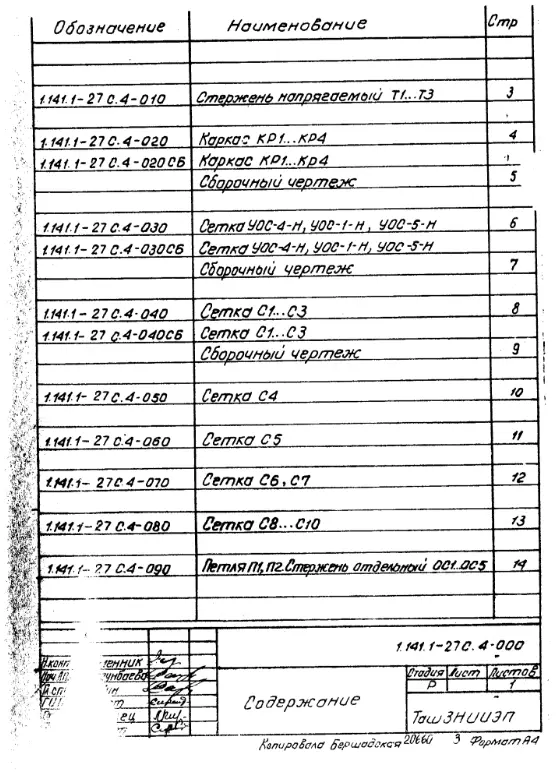 Обозначение Наименование Стр
1.141.1-27 С.4-010 Стержень напрягаемый Т1...Т3 3
1.141.1-27 С.4-020 Каркас КР1...КР4 4
1.141.1-27 С.4-020СБ Каркас КР1...КР4
Сборочный чертеж 5
1.141.1-27 С.4-030 Сетка УОС-4-Н, УОС-1-Н, УОС-5-Н 6
1.141.1-27 С.4-030СБ Сетка УОС-4-Н, УОС-1-Н, УОС-5-Н
Сборочный чертеж 7
1.141.1-27 С.4-040 Сетка С1...С3 8
1.141.1-27 С.4-040СБ Сетка С1...С3
Сборочный чертеж 9
1.141.1-27 С.4-050 Сетка С4 10
1.141.1-27 С.4-060 Сетка С5 11
1.141.1-27 С.4-070 Сетка С6, С7 12
1.141.1-27 С.4-080 Сетка С8...С10 13
1.141.1-27 С.4-090 Петля П1, П2. Стержень отдельный ОС1..ОС5 14
1.141.1-27 С.4-000
Содержание
Стадия Лист Листов
Р 1
ТашЗНИИЭП
Копировала Бершадская 20660 3 Формат А4